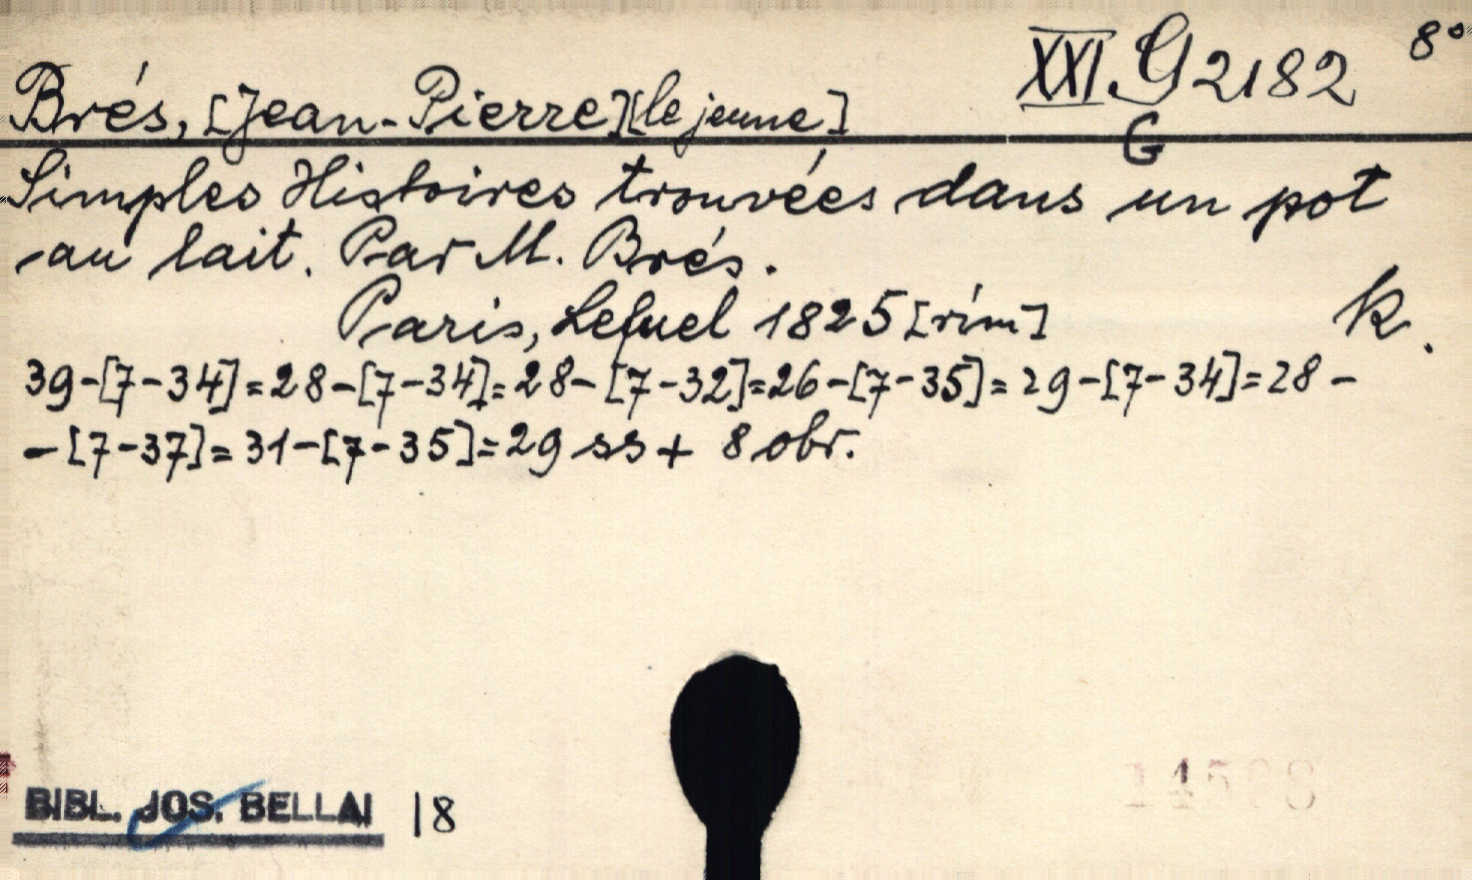 XXI. G 2182 8°
Brés, [Jean-Pierre][le jeune]
G
Simples Histoires trouvées dans un pot
au lait. Par M. Brés.
Paris, Lefuel 1825 [rím] k.
39-[7-34]=28-[7-34]=28-[7-32]=26-[7-35]=29-[7-34]=28-
-[7-37]=31-[7-35]=29 ss + 8 obr.
BIBL. JOS. BELLAI |8